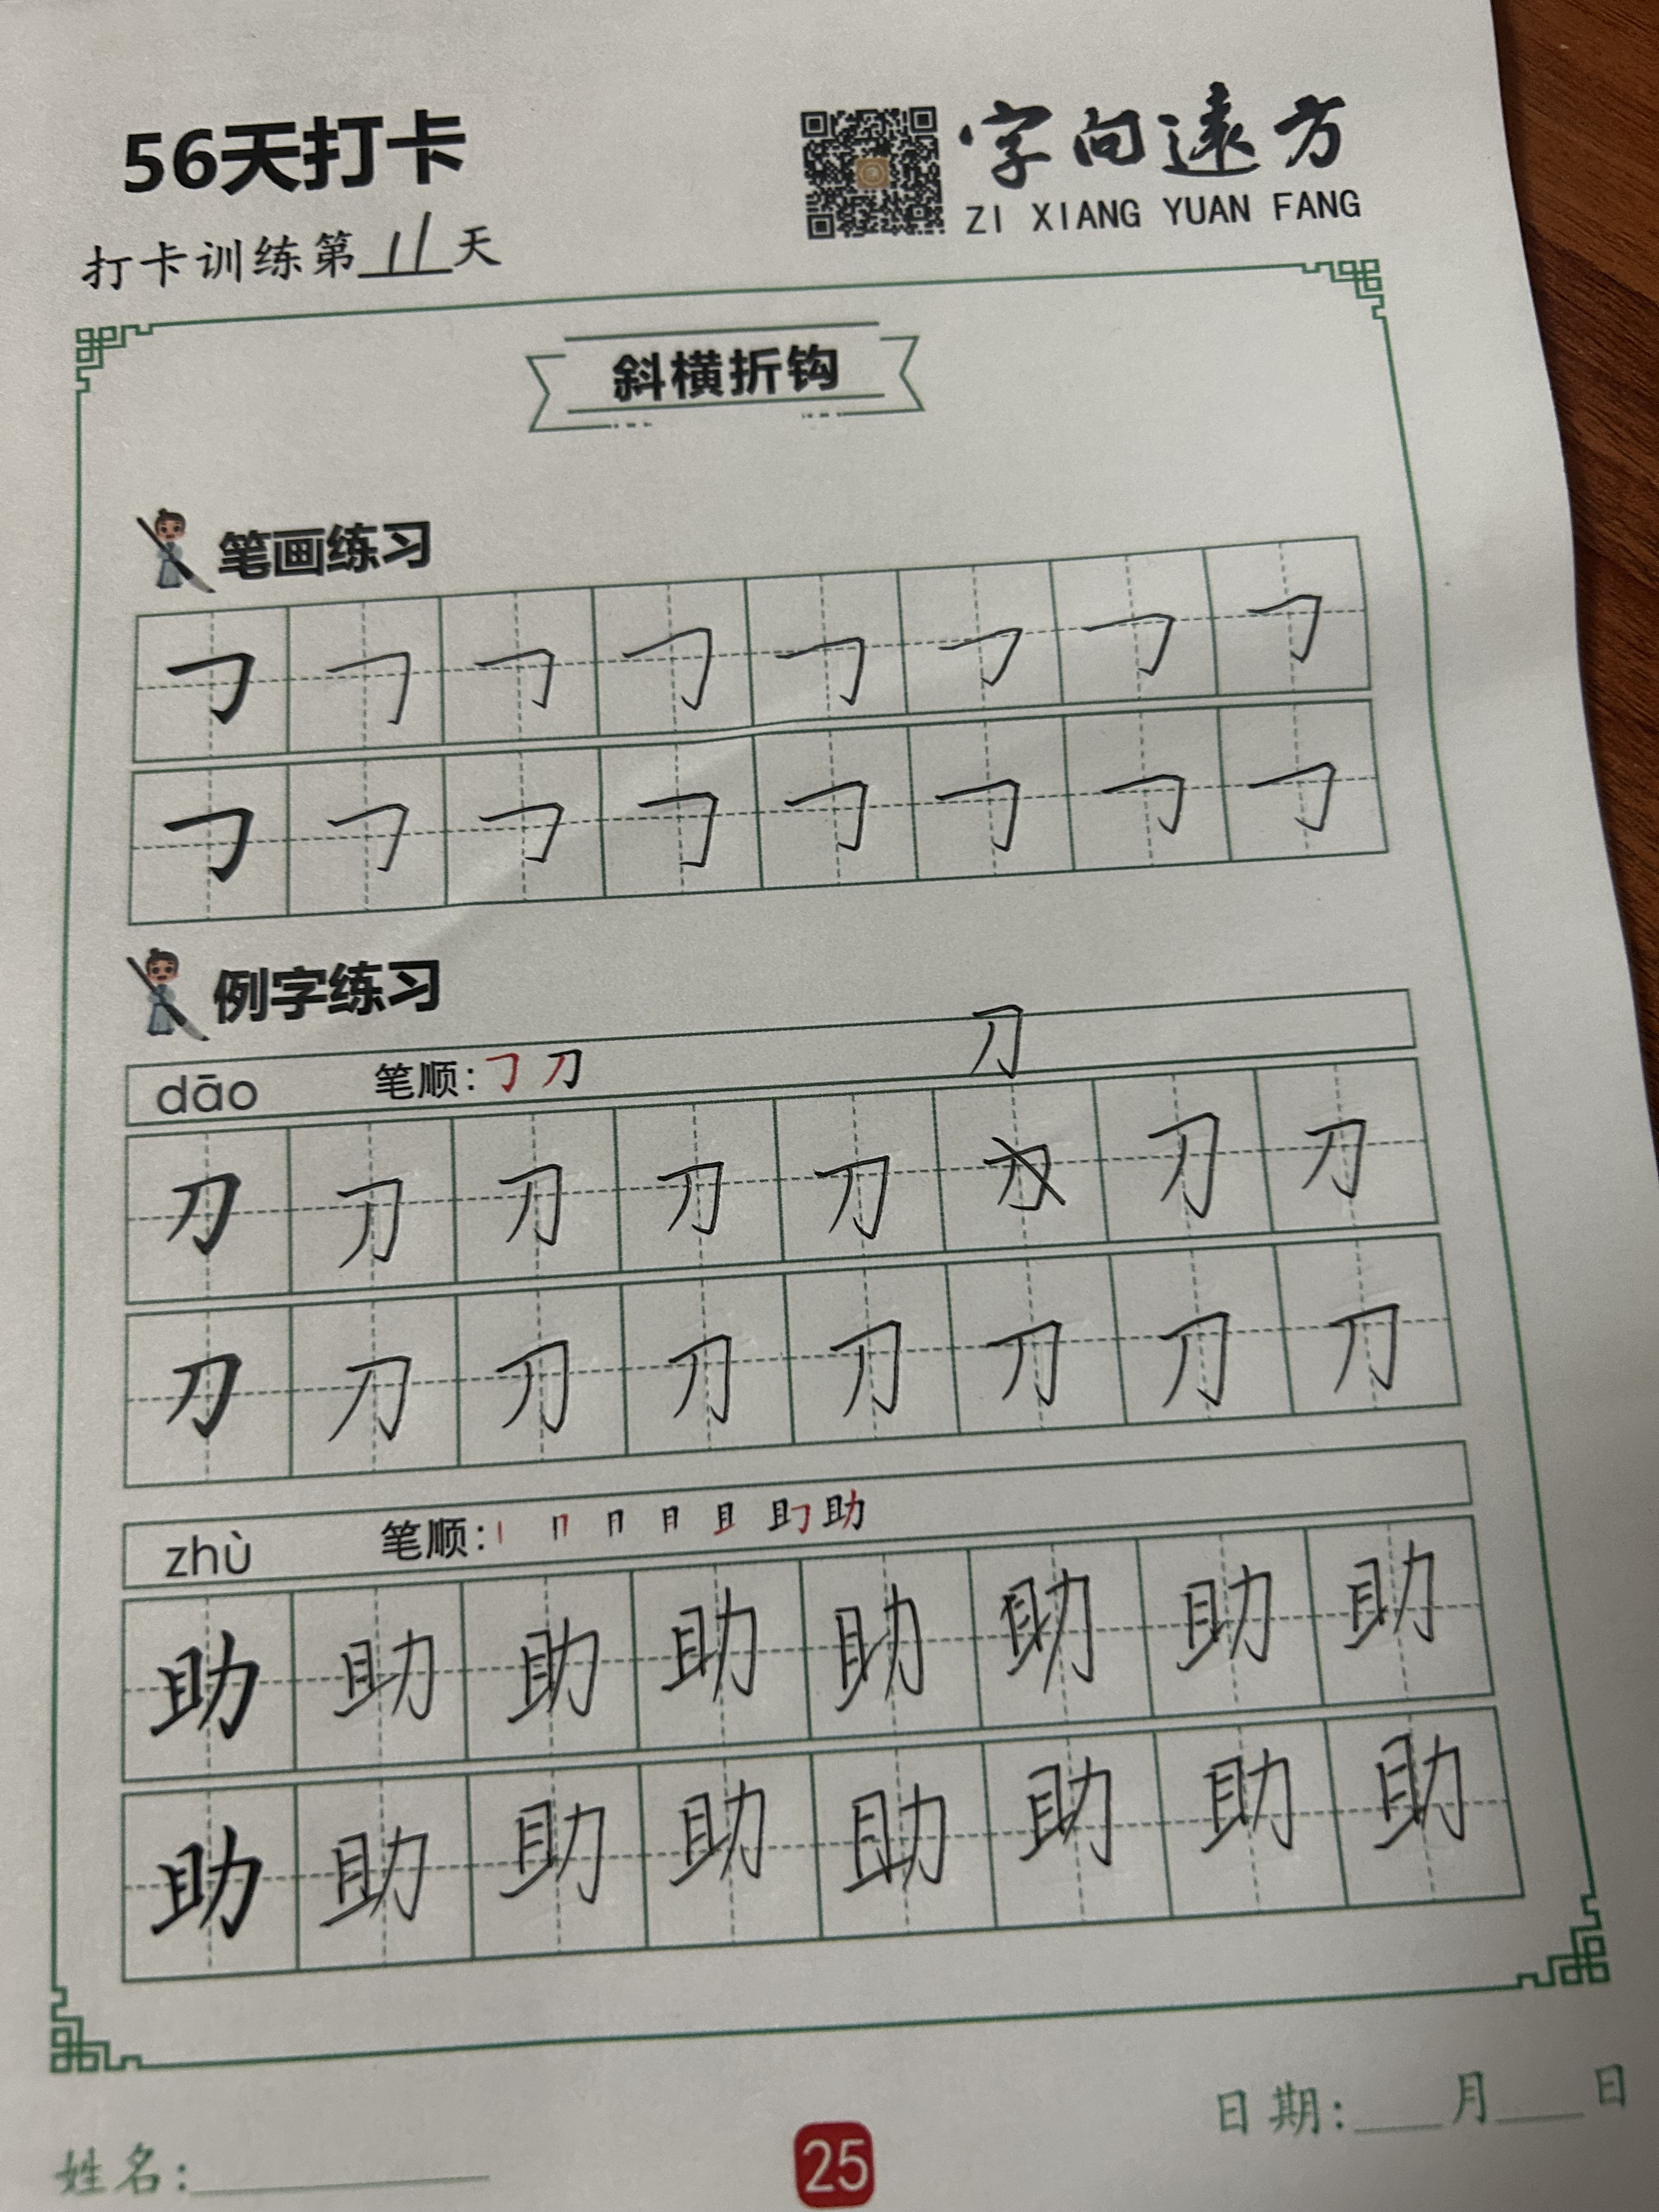 56天打卡
字向遠方
ZI XIANG YUAN FANG
打卡训练第11天
斜横折钩
笔画练习
𠃌 𠃌 𠃌 𠃌 𠃌 𠃌 𠃌 𠃌
𠃌 𠃌 𠃌 𠃌 𠃌 𠃌 𠃌 𠃌
例字练习
刀
dāo 笔顺:𠃌 刀
刀 刀 刀 刀 刀 刀 刀
刀 刀 刀 刀 刀 刀 刀 刀
zhù 笔顺:丨 冂 ⺆ 月 且 助 助
助 助 助 助 助 助 助 助
助 助 助 助 助 助 助 助
姓名:
25
日期: 月 日